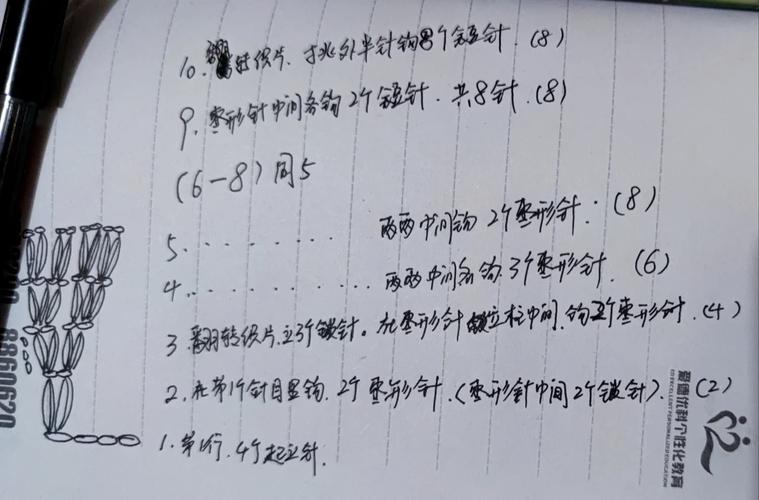 10. 翻转织片. 才挑外半针钩8个短针. (8)
9. 枣形针中间各钩2个短针. 共8针. (8)
(6-8) 同5
5. . . . . . . . . 两两中间钩 2个枣形针. (8)
4. . . . . . . . . . . . 两两中间各钩 3个枣形针. (6)
3. 翻转织片, 立3个锁针。在枣形针 立柱中间, 钩 个枣形针. (4)
2. 在第1个针目里钩. 2个枣形针. (枣形针中间2个锁针). (2)
1. 第1行, 4个起立针.
爱德优科个性化教育
EXCELLENT PERSONALIZED EDUCATION
8860620